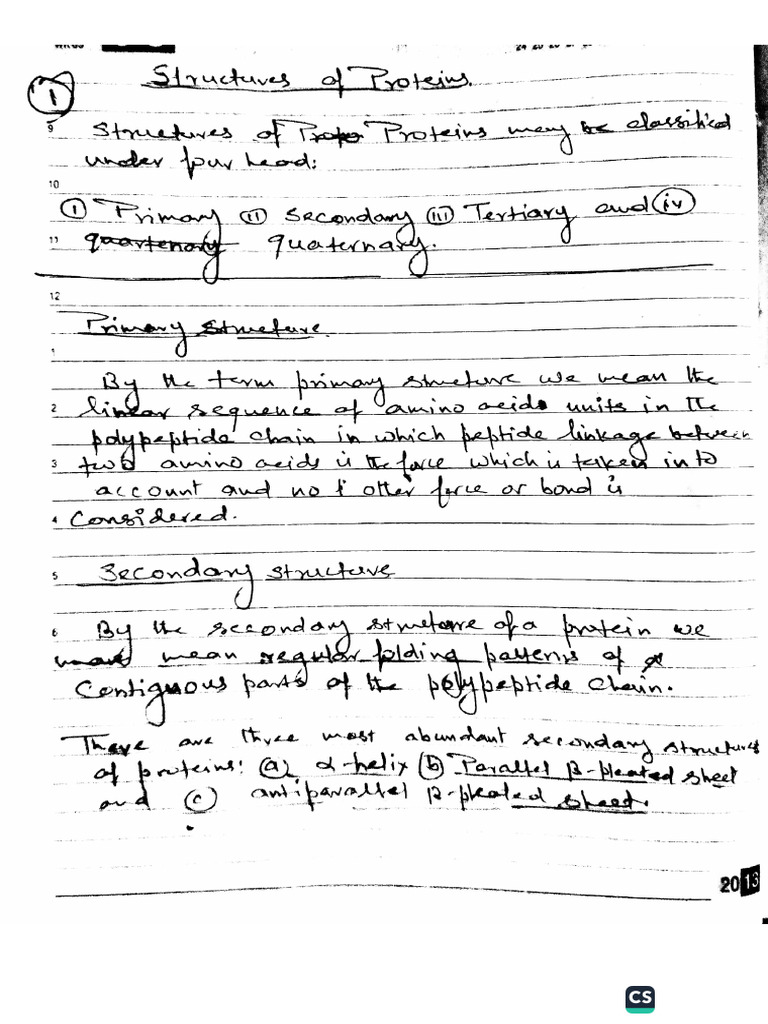 Structures of Proteins.
1
9 Structures of Proteins may be classified
under four head:
10
(i) Primary (ii) Secondary (iii) Tertiary and (iv)
11 quartenary quaternary.
12
Primary structure.
1
By the term primary structure we mean the
2 linear sequence of amino acids units in the
polypeptide chain in which peptide linkage between
3 two amino acids is the force which is taken into
account and no other force or bond is
4 Considered.
5 Secondary structure
6 By the secondary structure of a protein we
mean regular folding patterns of
Contiguous parts of the polypeptide chain.
There are three most abundant secondary structures
of proteins: (a) α-helix (b) Parallel β-pleated sheet
and (c) antiparallel β-pleated sheet.
2013
CS